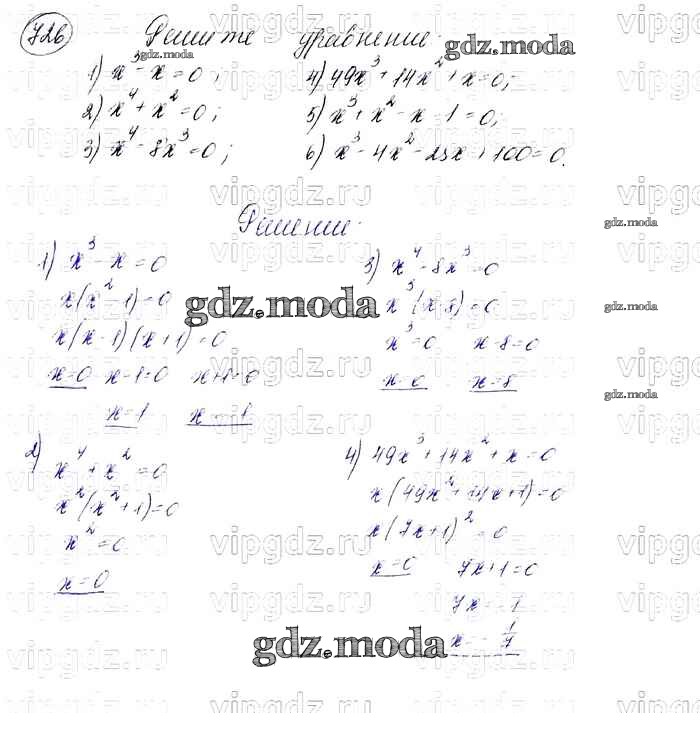 726 Решите уравнение:
1) x³ - x = 0;
2) x⁴ + x² = 0;
3) x⁴ - 8x³ = 0;
4) 49x³ + 14x² + x = 0;
5) x³ + x² - x - 1 = 0;
6) x³ - 4x² - 25x + 100 = 0.
Решение:
1) x³ - x = 0
x(x² - 1) = 0
x(x - 1)(x + 1) = 0
x = 0 x - 1 = 0 x + 1 = 0
x = 1 x = -1
2) x⁴ + x² = 0
x²(x² + 1) = 0
x² = 0
x = 0
3) x⁴ - 8x³ = 0
x³(x - 8) = 0
x³ = 0 x - 8 = 0
x = 0 x = 8
4) 49x³ + 14x² + x = 0
x(49x² + 14x + 1) = 0
x(7x + 1)² = 0
x = 0 7x + 1 = 0
7x = -1
x = -1/7
gdz.moda
gdz.moda
gdz.moda
gdz.moda
gdz.moda
gdz.moda
gdz.moda
vipgdz.ru